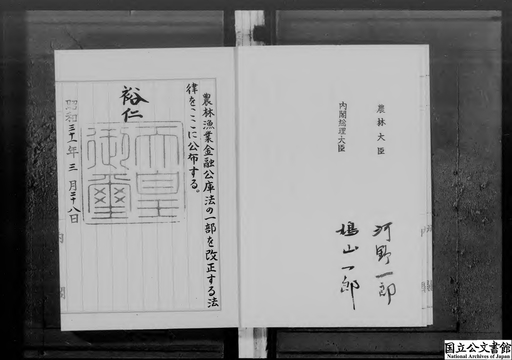 農林漁業金融公庫法の一部を改正する法
律をここに公布する。
裕仁
天皇
御璽
昭和三十一年三月二十八日
内閣
農林大臣
河野一郎
内閣総理大臣
鳩山一郎
国立公文書館
National Archives of Japan